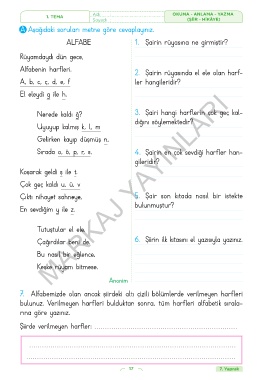 1. TEMA
OKUNA - ANLAMA - YAZMA
(ŞİİR - HİKÂYE)
Aşağıdaki soruları metne göre cevaplayınız.
ALFABE
Rüyamdaydı dün gece,
Alfabenin harfleri.
A, b, c, ç, d, e, f
El eleydi g ile h.
Nerede kaldı ğ?
Uyuyup kalmış k, l, m
Gelirken kayıp düşmüş n,
Sırada o, ö, p, r, s.
Koşarak geldi ş ile t.
Çok geç kaldı u, ü, v
Çıktı nihayet sahneye,
En sevdiğim y ile z.
Tutuştular el ele,
Çağırdılar beni de.
Bu nasıl bir eğlence,
Keşke rüyam bitmese.
Anonim
1. Şairin rüyasına ne girmiştir?
2. Şairin rüyasında el ele olan harf-
ler hangileridir?
3. Şairi hangi harflerin çok geç kal-
dığını söylemektedir?
4. Şairin en çok sevdiği harfler han-
gileridir?
5. Şair son kıtada nasıl bir istekte
bulunmuştur?
6. Şiirin ilk kıtasını el yazısıyla yazınız.
7. Alfabemizde olan ancak şiirdeki altı çizili bölümlerde verilmeyen harfleri
bulunuz. Verilmeyen harfleri bulduktan sonra, tüm harfleri alfabetik sırala-
rına göre yazınız.
Şiirde verilmeyen harfler:
MARKAJ YAYINLARI
17
2. Yaprak